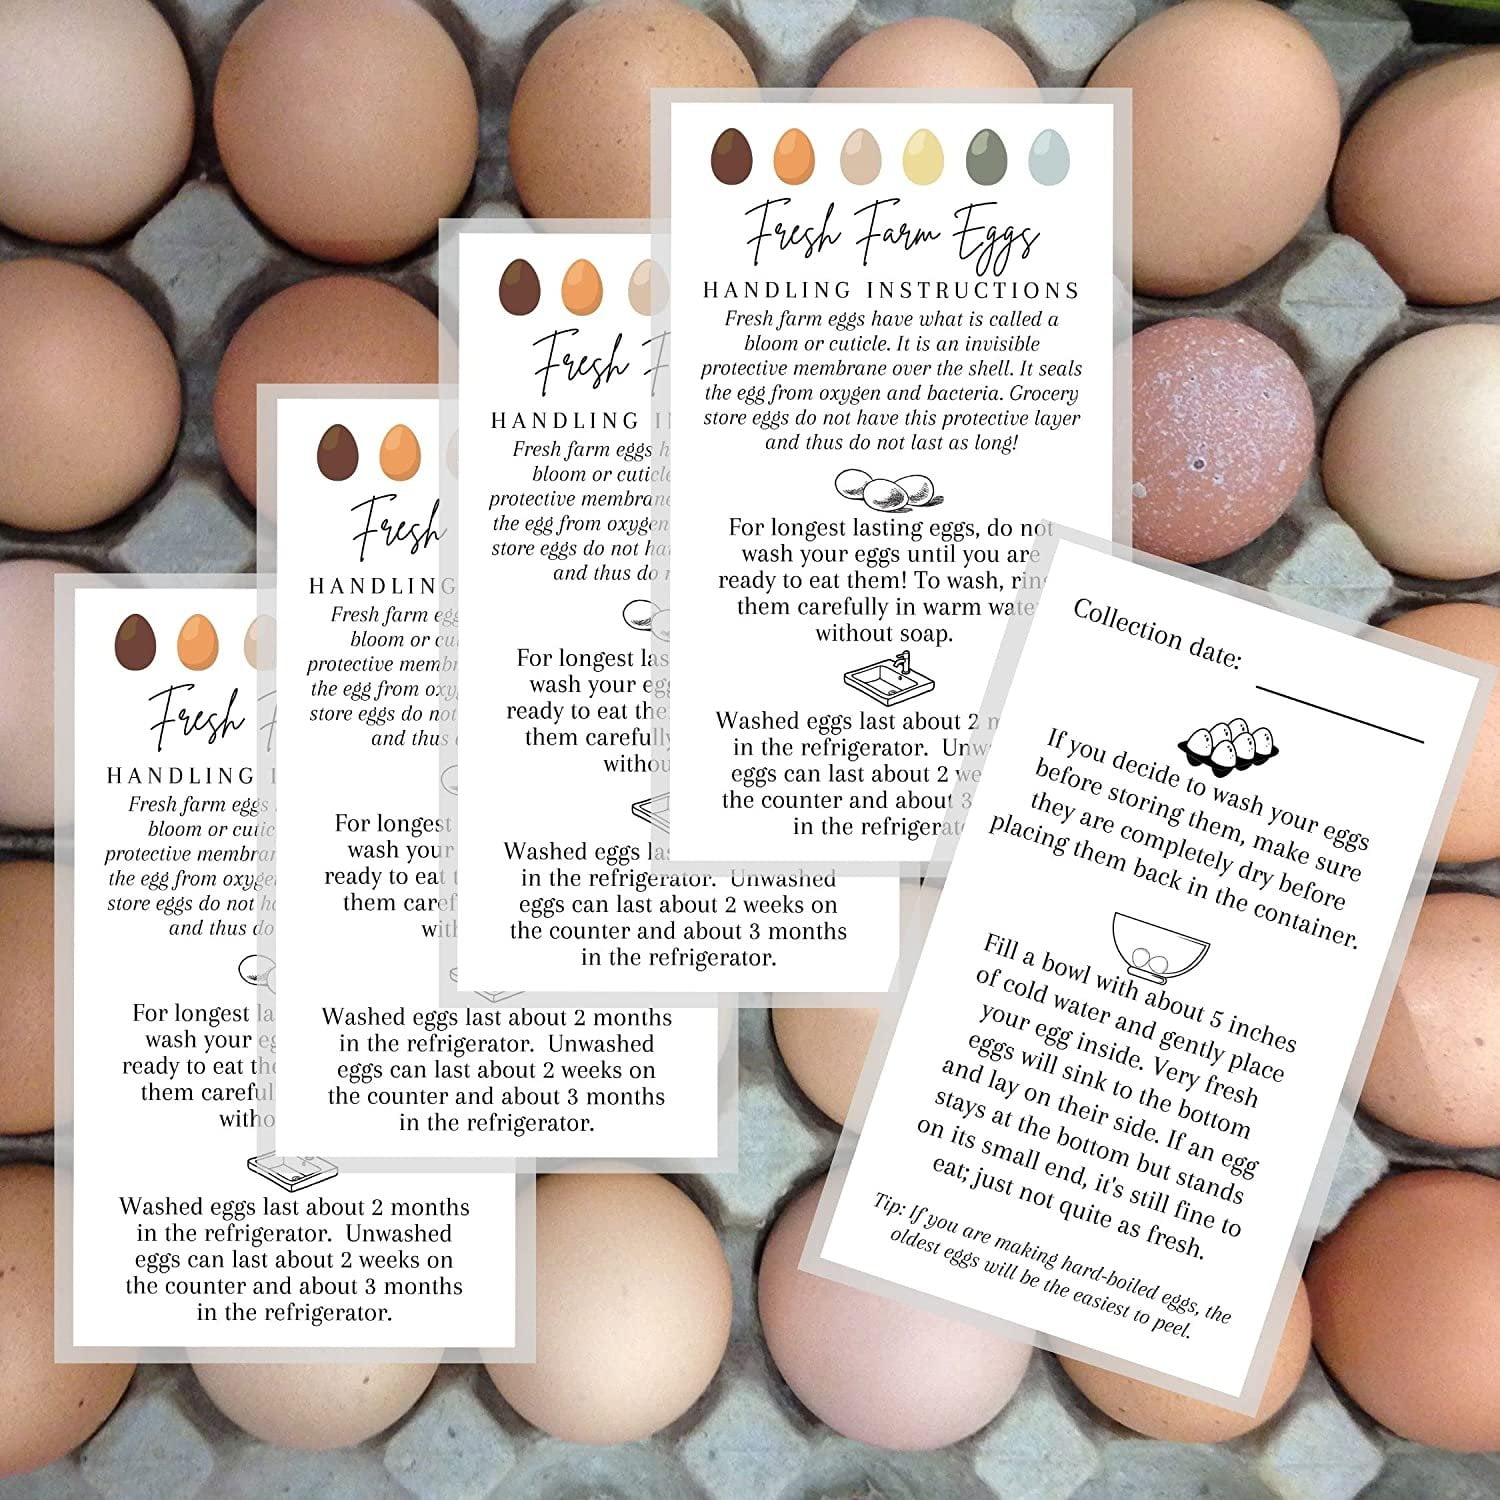 Fresh Farm Eggs
HANDLING INSTRUCTIONS
Fresh farm eggs have what is called a
bloom or cuticle. It is an invisible
protective membrane over the shell. It seals
the egg from oxygen and bacteria. Grocery
store eggs do not have this protective layer
and thus do not last as long!
For longest lasting eggs, do not
wash your eggs until you are
ready to eat them! To wash, rinse
them carefully in warm water
without soap.
Washed eggs last about 2
in the refrigerator. Unwashed
eggs can last about 2 weeks
the counter and about 3
in the refrigerator
Fresh
HANDLING
Fresh farm eggs
bloom or cuticle
protective membrane
the egg from oxygen
store eggs do not
and thus do
For longest
wash your eggs
ready to eat
them carefully
without
Washed eggs
in the refrigerator. Unwashed
eggs can last about 2 weeks on
the counter and about 3 months
in the refrigerator.
Fresh
HANDLING
Fresh farm
bloom or
protective
the egg from
store eggs do not
and thus
For longest
wash your
ready to eat
them
Washed eggs last about 2 months
in the refrigerator. Unwashed
eggs can last about 2 weeks on
the counter and about 3 months
in the refrigerator.
Fresh
HANDLING
Fresh farm eggs
bloom or
protective
the egg from
store eggs do not
and thus do
For longest
wash your
ready to eat
them
Washed eggs last about 2 months
in the refrigerator. Unwashed
eggs can last about 2 weeks on
the counter and about 3 months
in the refrigerator.
Collection date:
If you decide to wash your eggs
before storing them, make sure
they are completely dry before
placing them back in the container.
Fill a bowl with about 5 inches
of cold water and gently place
your egg inside. Very fresh
eggs will sink to the bottom
and lay on their side. If an egg
stays at the bottom but stands
on its small end, it's still fine to
eat; just not quite as fresh.
Tip: If you are making hard-boiled eggs, the
oldest eggs will be the easiest to peel.